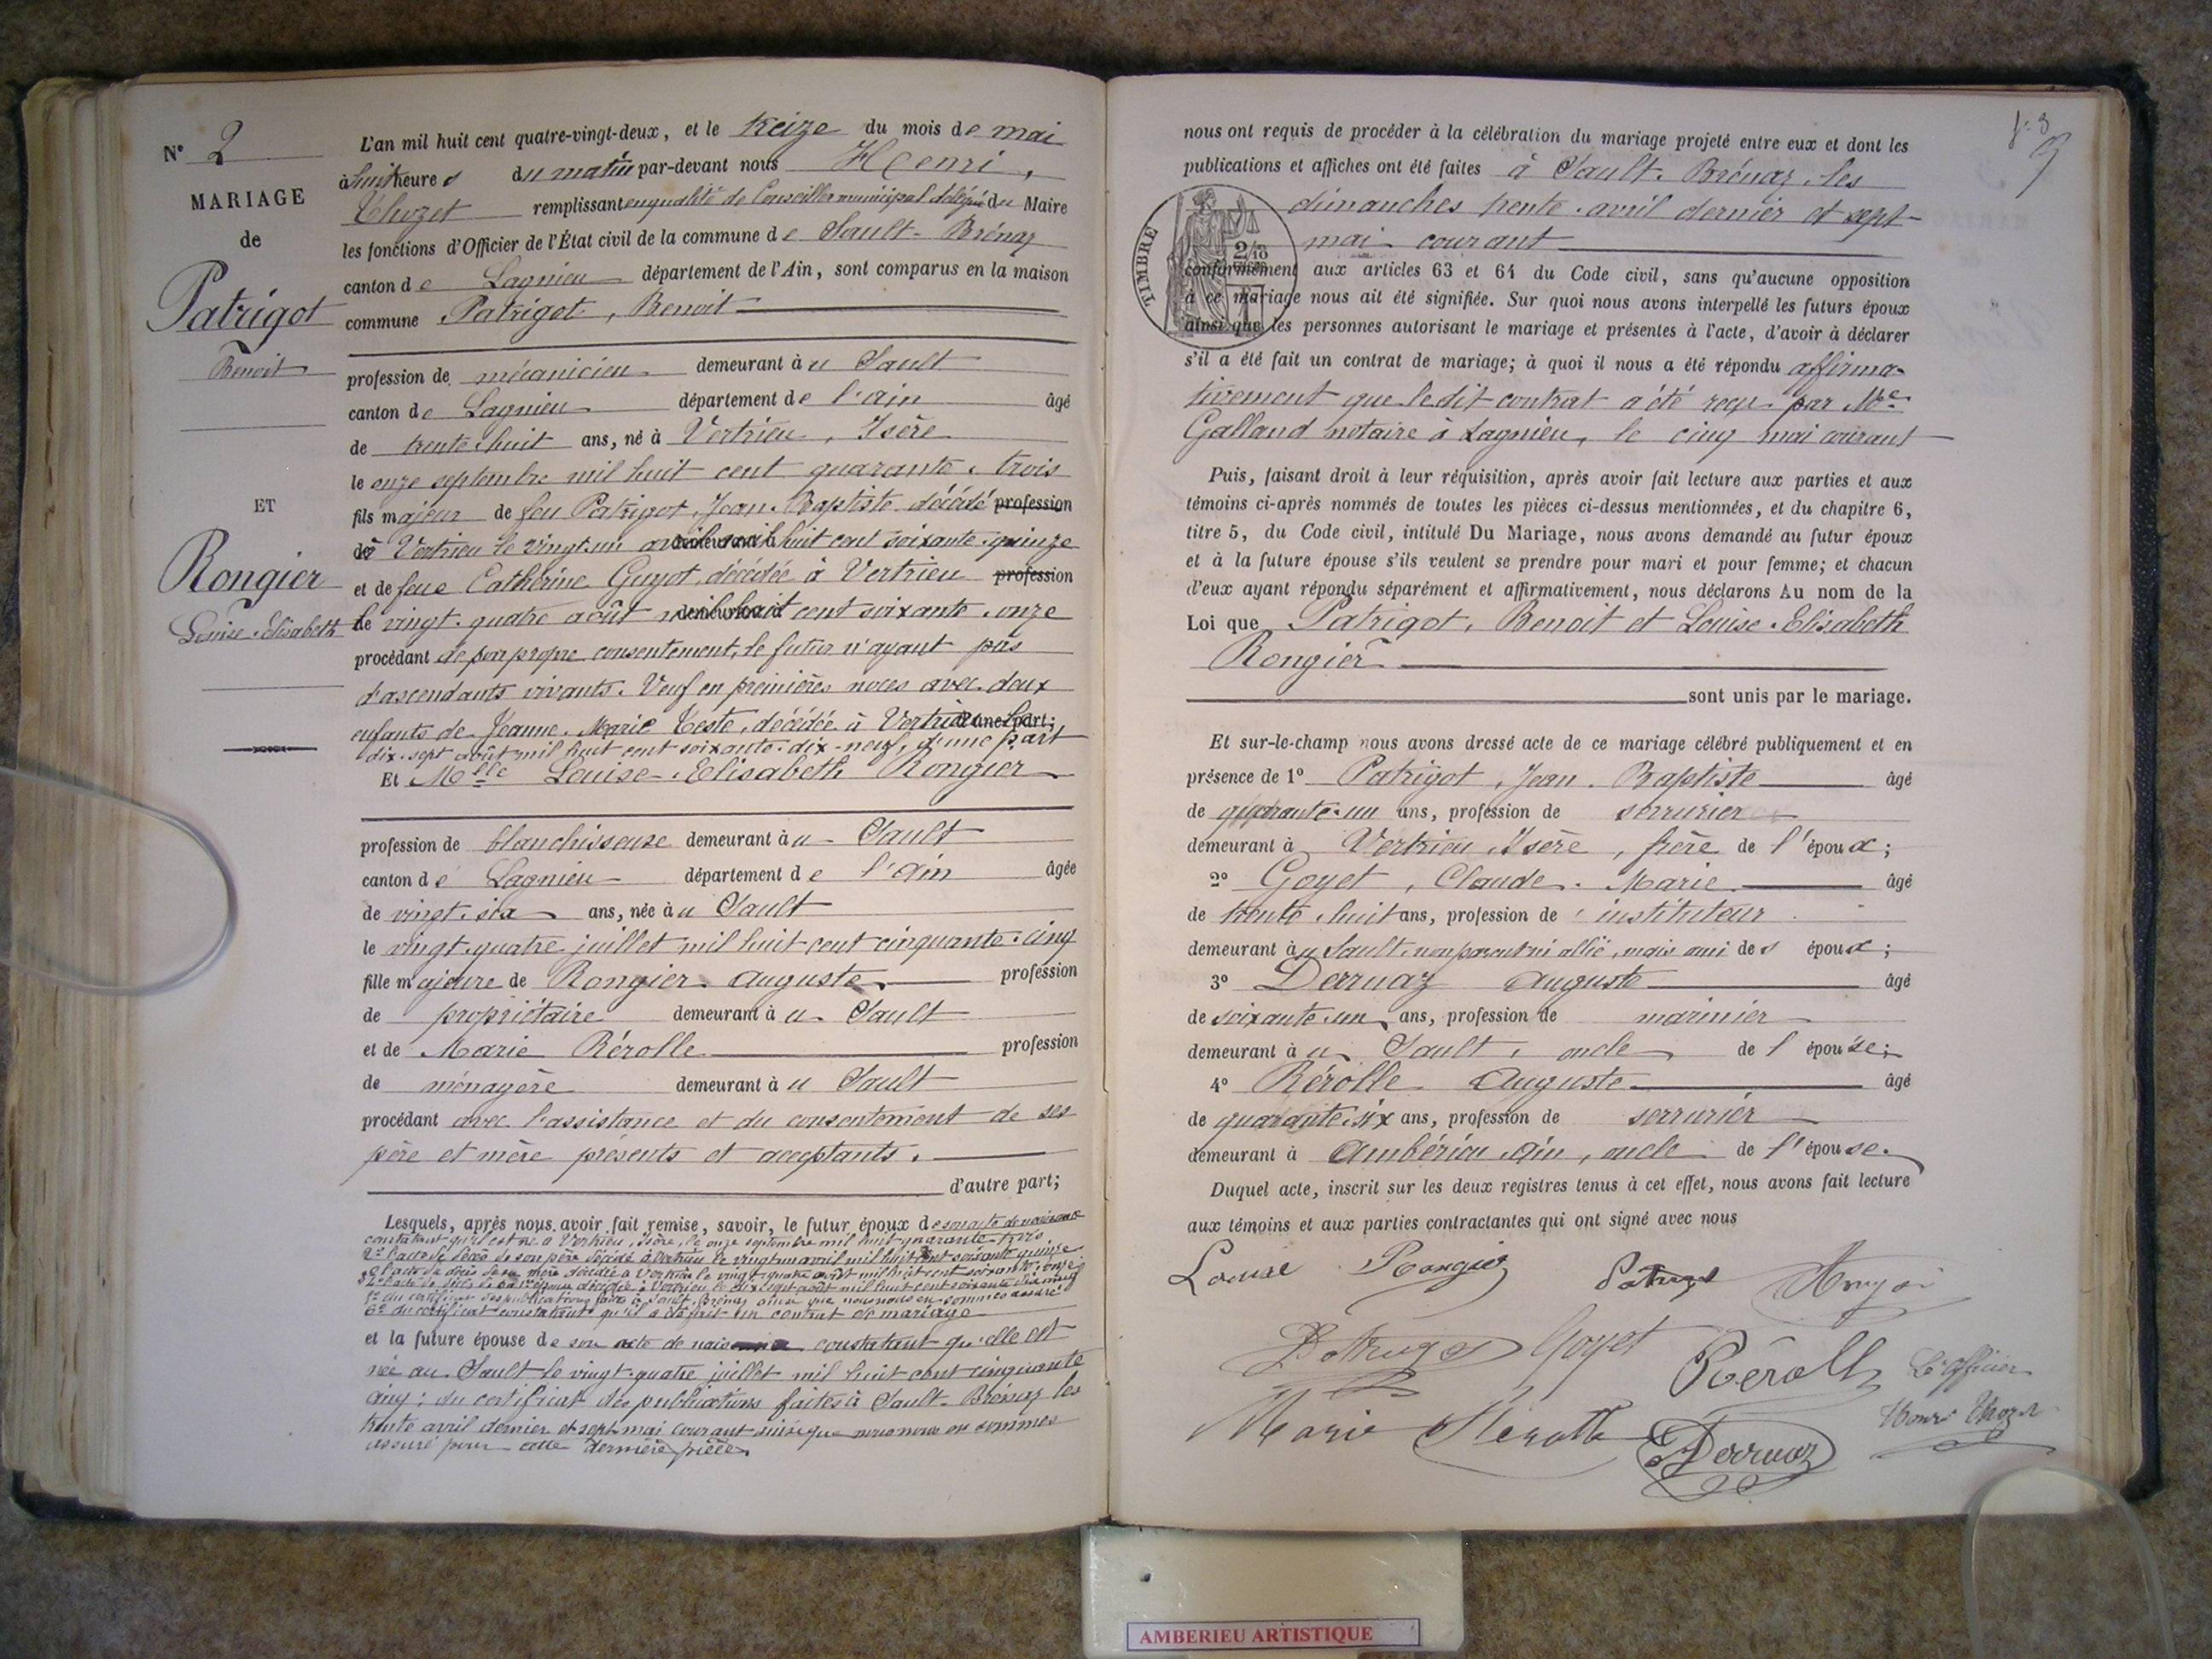 N° 2
MARIAGE
de
Patrigot
Benoit
ET
Rongier
Louise-Elisabeth
L'an mil huit cent quatre-vingt-deux, et le treize du mois de mai
à huit heures du matin par-devant nous Henri,
Thozet remplissant en qualité de Conseiller municipal délégué du Maire
les fonctions d'Officier de l'État civil de la commune de Sault-Brénaz
canton de Lagnieu département de l'Ain, sont comparus en la maison
commune Patrigot, Benoit
profession de mécanicien demeurant à u Sault
canton de Lagnieu département de l'ain âgé
de trente-huit ans, né à Vertrieu, Isère
le onze septembre mil huit cent quarante-trois
fils majeur de feu Patrigot, Jean-Baptiste décédé profession
à Vertrieu le vingt-un avril mil huit cent soixante-quinze
et de feue Catherine Guyot, décédée à Vertrieu profession
le vingt-quatre août mil huit cent soixante-onze
procédant de son propre consentement, le futur n'ayant pas
d'ascendants vivants. Veuf en premières noces avec deux
enfants de Jeanne-Marie Teste, décédée à Vertrieu le d'une part;
dix-sept août mil huit cent soixante-dix-neuf, d'une part
Et Melle Louise-Elisabeth Rongier
profession de blanchisseuse demeurant à u Sault
canton de Lagnieu département de l'ain âgée
de vingt-six ans, née à u Sault
le vingt-quatre juillet mil huit cent cinquante-cinq
fille majeure de Rongier Auguste profession
de propriétaire demeurant à u Sault
et de Marie Rérolle profession
de ménagère demeurant à u Sault
procédant avec l'assistance et du consentement de ses
père et mère présents et acceptants.
d'autre part;
Lesquels, après nous avoir fait remise, savoir, le futur époux de son acte de naissance
constatant qu'il est né à Vertrieu, Isère, le onze septembre mil huit quarante-trois
2° l'acte de décès de son père décédé à Vertrieu le vingt-un avril mil huit cent soixante quinze
3° l'acte de décès de sa mère décédée à Vertrieu le vingt-quatre août mil huit cent soixante-onze
4° l'acte de décès de sa 1re épouse décédée à Vertrieu le dix-sept août mil huit cent soixante dix neuf
5° du certificat des publications faites à Sault-Brénaz ainsi que nous nous en sommes assuré
6° du certificat constatant qu'il a été fait un contrat de mariage
et la future épouse de son acte de naissance constatant qu'elle est
née au Sault le vingt-quatre juillet mil huit cent cinquante
cinq; du certificat des publications faites à Sault-Brénaz les
trente avril dernier et sept mai courant ainsi que nous nous en sommes
assuré pour cette dernière pièce
nous ont requis de procéder à la célébration du mariage projeté entre eux et dont les
publications et affiches ont été faites à Sault-Brénaz, les
dimanches trente avril dernier et sept
mai courant
TIMBRE
2/10
conformément aux articles 63 et 64 du Code civil, sans qu'aucune opposition
à ce mariage nous ait été signifiée. Sur quoi nous avons interpellé les futurs époux
ainsi que les personnes autorisant le mariage et présentes à l'acte, d'avoir à déclarer
s'il a été fait un contrat de mariage; à quoi il nous a été répondu affirma-
tivement que le dit contrat a été reçu par Me
Galland notaire à Lagnieu, le cinq mai courant
Puis, faisant droit à leur réquisition, après avoir fait lecture aux parties et aux
témoins ci-après nommés de toutes les pièces ci-dessus mentionnées, et du chapitre 6,
titre 5, du Code civil, intitulé Du Mariage, nous avons demandé au futur époux
et à la future épouse s'ils veulent se prendre pour mari et pour femme; et chacun
d'eux ayant répondu séparément et affirmativement, nous déclarons Au nom de la
Loi que Patrigot, Benoit et Louise-Elisabeth
Rongier
sont unis par le mariage.
Et sur-le-champ nous avons dressé acte de ce mariage célébré publiquement et en
présence de 1° Patrigot, Jean-Baptiste âgé
de quarante-un ans, profession de serrurier
demeurant à Vertrieu, Isère, frère de l'époux;
2° Goyet, Claude-Marie âgé
de trente-huit ans, profession de instituteur
demeurant à u Sault, non parent ni allié, mais ami des époux;
3° Derruaz Auguste âgé
de soixante-un ans, profession de marinier
demeurant à u Sault, oncle de l'épouse;
4° Rérolle Auguste âgé
de quarante-six ans, profession de serrurier
demeurant à Ambérieu, Ain, oncle de l'épouse.
Duquel acte, inscrit sur les deux registres tenus à cet effet, nous avons fait lecture
aux témoins et aux parties contractantes qui ont signé avec nous
Louise Rongier Patrigot
Patrigot Goyet Rérolle L'officier
Marie Rérolle Derruaz Henri Thozet
AMBERIEU ARTISTIQUE